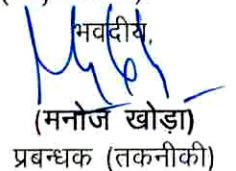 भवदीय,
(मनोज खोड़ा)
प्रबन्धक (तकनीकी)